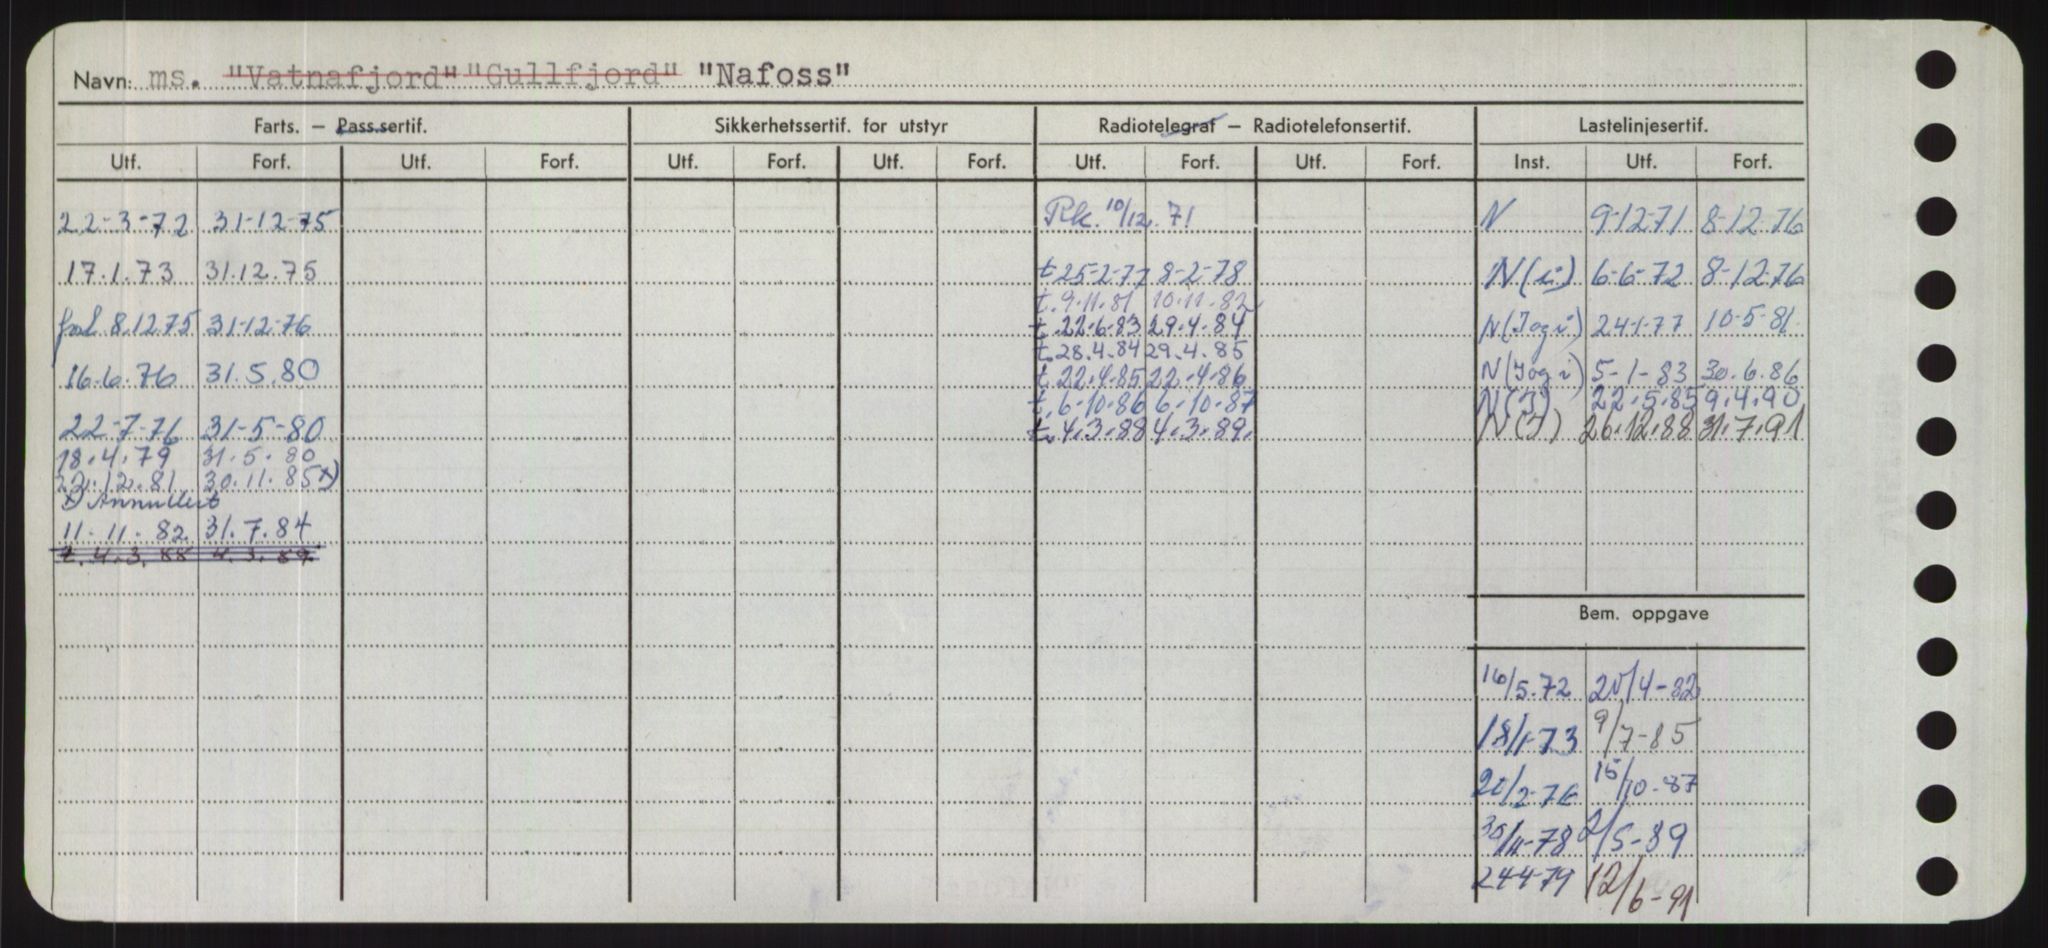 Navn: ms. "Vatnafjord" "Gullfjord" "Nafoss"
Farts. – Pass.sertif. Sikkerhetssertif. for utstyr Radiotelegraf – Radiotelefonsertif. Lastelinjesertif.
Utf. Forf. Utf. Forf. Utf. Forf. Utf. Forf. Utf. Forf. Utf. Forf. Inst. Utf. Forf.
22-3-72 31-12-75 Rk. 10/12. 71 N 9-12-71 8-12-76
17.1.73 31.12.75 t 25-2-77 8-2-78 N(i) 6-6-72 8-12-76
t. 9.11.81 10.11.82
8.12.75 31-12-76 t. 22.6.83 29.4.84 N(I og i) 24-1-77 10-5-81
t. 28.4.84 29.4.85
16.6.76 31.5.80 t. 22.4.85 22.4.86 N(I og i) 5-1-83 30.6.86
t. 6.10.86 6.10.87 N(I) 22.5.85 9.4.90
22-7-76 31-5-80 t. 4.3.88 4.3.89. N(I) 26.12.88 31.7.91
18.4.79 31.5.80
22.12.81 30.11.85 x)
x) Annullert
11-11-82 31.7.84
t. 4.3.88 4.3.89.
Bem. oppgave
16/5.72 /4-82
18/1-73 9/7-85
20/2-76 15/10-87
30/11-78 2/5-89
24-4-79 12/6-91